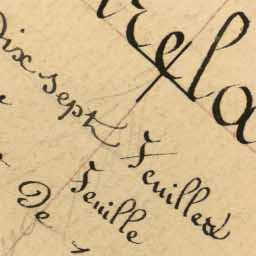 refla
Dix sept Feuilles
Feuille
De